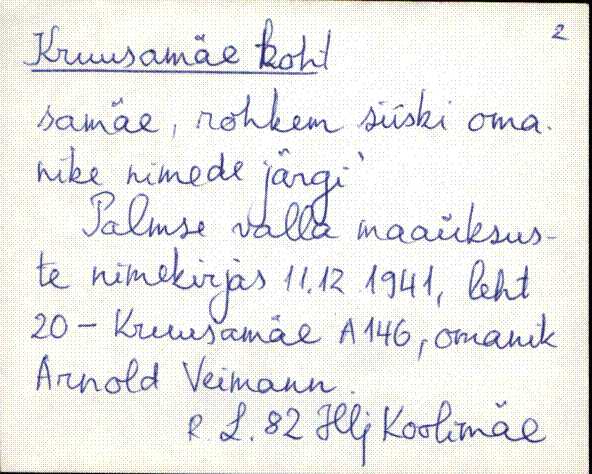 2
Kruusamäe koht
samäe, rohkem siiski oma-
nike nimede järgi'
Palmse valla maaüksus-
te nimekirjas 11.12 1941, leht
20 - Kruusamäe A 146, omanik
Arnold Veimann.
R. L. 82 Hlj Koolimäe